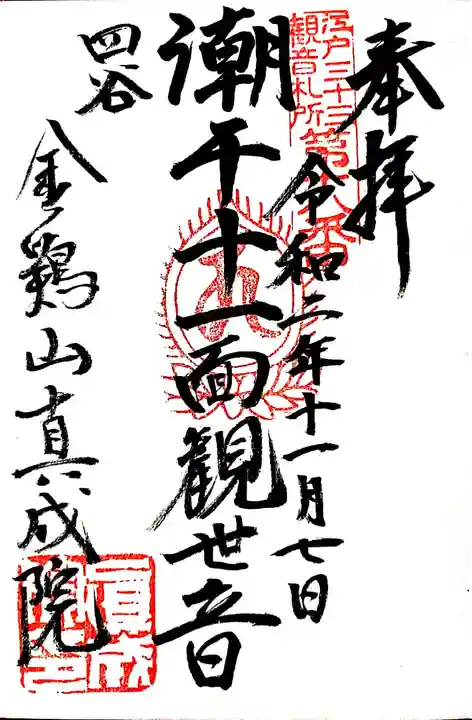 奉拝
江戸三十三
観音札所
第十八番
令和二年十一月七日
潮干十一面観世音
四谷
金鶏山真成院